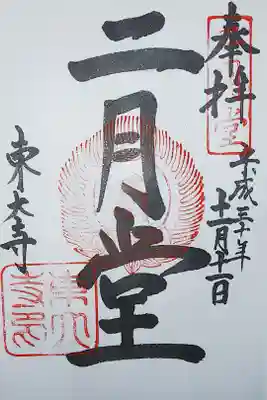 奉拝
平成三十年
十一月十二日
二月堂
東大寺